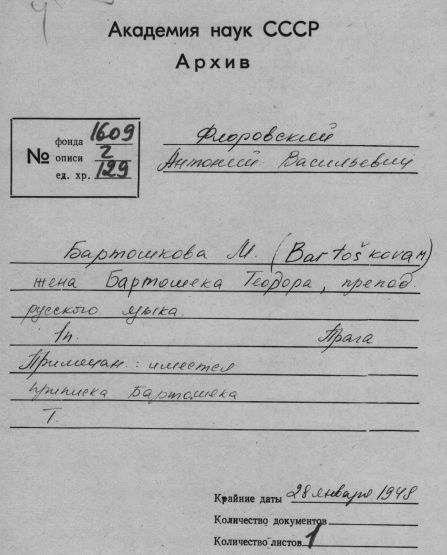 Академия наук СССР
Архив
№ фонда 1609
описи 2
ед. хр. 129
Флоровский
Антоний Васильевич
Бартошкова М. (Bartoškova M)
жена Бартошека Теодора, препод.
русского языка.
1п. Прага
Примечан.: имеется
приписка Бартошека
Т.
Крайние даты 28 января 1948
Количество документов
Количество листов 1